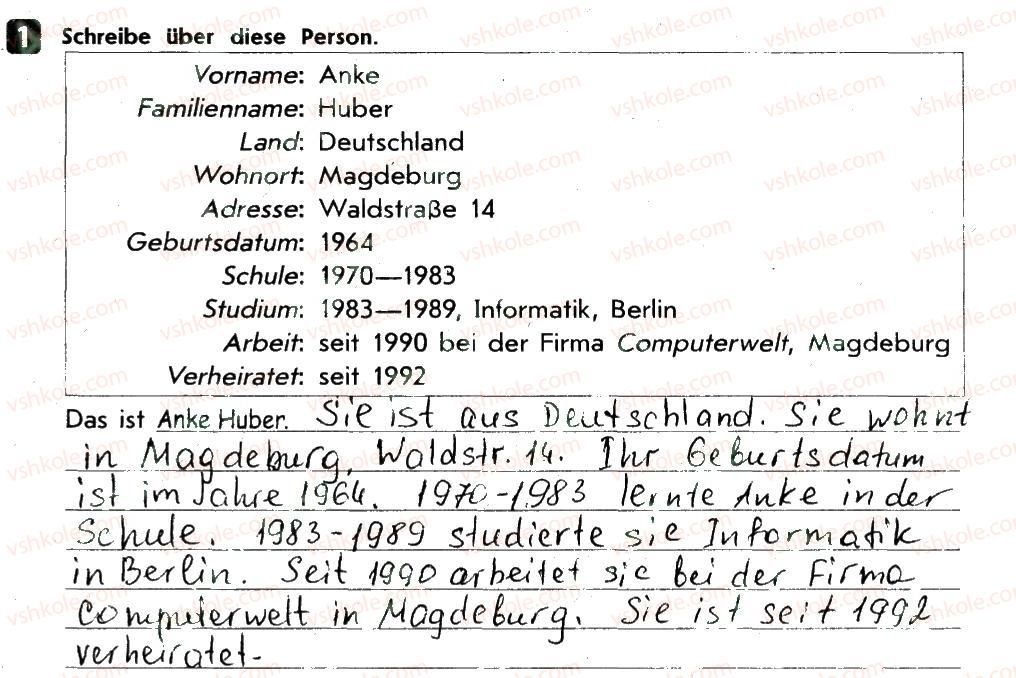 1 Schreibe über diese Person.
Vorname: Anke
Familienname: Huber
Land: Deutschland
Wohnort: Magdeburg
Adresse: Waldstraße 14
Geburtsdatum: 1964
Schule: 1970—1983
Studium: 1983—1989, Informatik, Berlin
Arbeit: seit 1990 bei der Firma Computerwelt, Magdeburg
Verheiratet: seit 1992
Das ist Anke Huber. Sie ist aus Deutschland. Sie wohnt
in Magdeburg, Waldstr. 14. Ihr Geburtsdatum
ist im Jahre 1964. 1970-1983 lernte Anke in der
Schule. 1983-1989 studierte sie Informatik
in Berlin. Seit 1990 arbeitet sie bei der Firma
Computerwelt in Magdeburg. Sie ist seit 1992
verheiratet.
vshkole.com